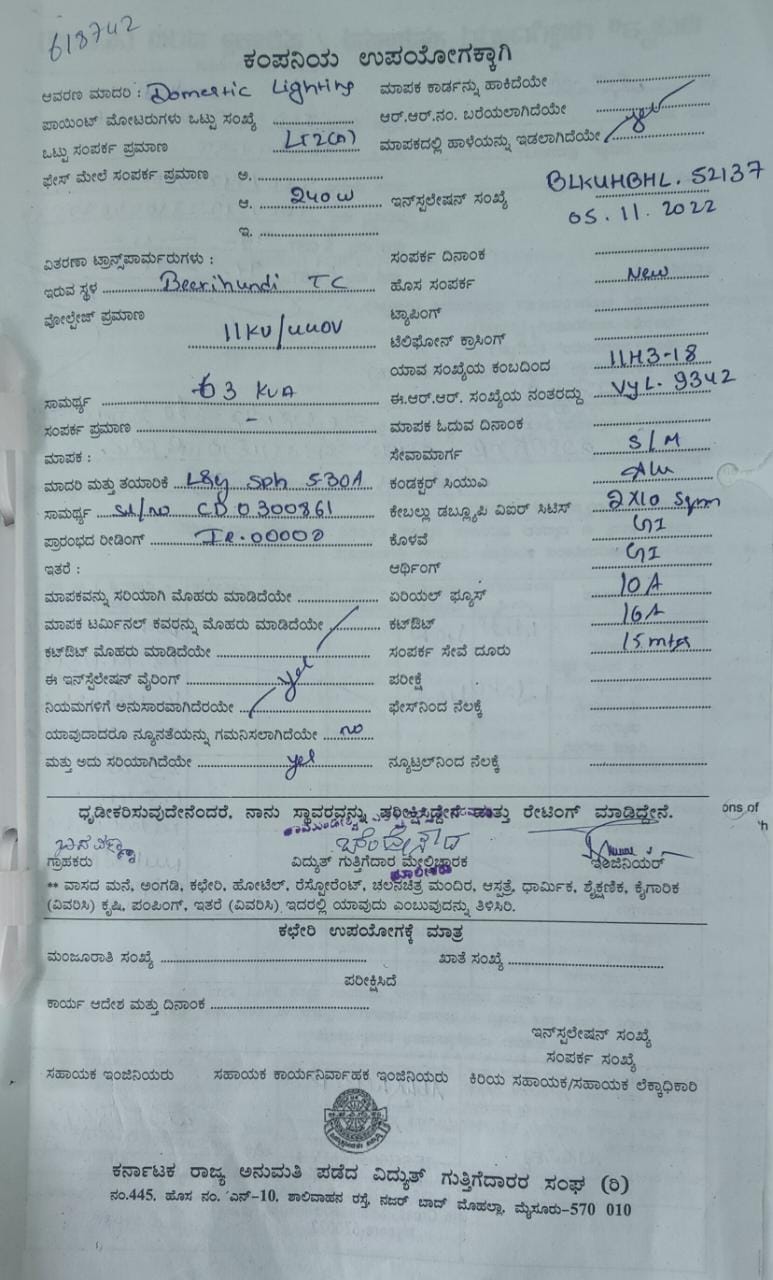 618742
ಕಂಪನಿಯ ಉಪಯೋಗಕ್ಕಾಗಿ
ಆವರಣ ಮಾದರಿ : Domestic Lighting ಮಾಪಕ ಕಾರ್ಡನ್ನು ಹಾಕಿದೆಯೇ
ಪಾಯಿಂಟ್ ಮೋಟರುಗಳು ಒಟ್ಟು ಸಂಖ್ಯೆ ಆರ್.ಆರ್.ನಂ. ಬರೆಯಲಾಗಿದೆಯೇ
ಒಟ್ಟು ಸಂಪರ್ಕ ಪ್ರಮಾಣ LT2(a) ಮಾಪಕದಲ್ಲಿ ಹಾಳೆಯನ್ನು ಇಡಲಾಗಿದೆಯೇ yes
ಫೇಸ್ ಮೇಲೆ ಸಂಪರ್ಕ ಪ್ರಮಾಣ ಅ.
ಆ. 240 W ಇನ್‌ಸ್ಟಲೇಷನ್ ಸಂಖ್ಯೆ BLKUHBHL. 52137
ಇ. 05.11.2022
ವಿತರಣಾ ಟ್ರಾನ್ಸ್‌ಪಾರ್ಮರುಗಳು : ಸಂಪರ್ಕ ದಿನಾಂಕ
ಇರುವ ಸ್ಥಳ Beerihundi TC ಹೊಸ ಸಂಪರ್ಕ New
ವೋಲ್ಟೇಜ್ ಪ್ರಮಾಣ 11KV/440V ಟ್ಯಾಪಿಂಗ್
ಟೆಲಿಫೋನ್ ಕ್ರಾಸಿಂಗ್
ಯಾವ ಸಂಖ್ಯೆಯ ಕಂಬದಿಂದ 11H3-18
ಸಾಮರ್ಥ್ಯ 63 KVA ಈ.ಆರ್.ಆರ್. ಸಂಖ್ಯೆಯ ನಂತರದ್ದು VYL. 9342
ಸಂಪರ್ಕ ಪ್ರಮಾಣ - ಮಾಪಕ ಓದುವ ದಿನಾಂಕ
ಮಾಪಕ : ಸೇವಾಮಾರ್ಗ S/M
ಮಾದರಿ ಮತ್ತು ತಯಾರಿಕೆ L&y Sph 5-30A ಕಂಡಕ್ಟರ್ ಸಿಯುಎ Alu
ಸಾಮರ್ಥ್ಯ Sl/no CD0300861 ಕೇಬಲ್ಲು ಡಬ್ಲ್ಯೂಪಿ ವಿಐರ್ ಸಿಟಿಸ್ 2X10 Sqmm
ಪ್ರಾರಂಭದ ರೀಡಿಂಗ್ IR.00000 ಕೊಳವೆ GI
ಇತರೆ : ಆರ್ಥಿಂಗ್ GI
ಮಾಪಕವನ್ನು ಸರಿಯಾಗಿ ಮೊಹರು ಮಾಡಿದೆಯೇ ಏರಿಯಲ್ ಫ್ಯೂಸ್ 10 A
ಮಾಪಕ ಟರ್ಮಿನಲ್ ಕವರನ್ನು ಮೊಹರು ಮಾಡಿದೆಯೇ ಕಟ್‌ಔಟ್ 16A
ಕಟ್‌ಔಟ್ ಮೊಹರು ಮಾಡಿದೆಯೇ ಸಂಪರ್ಕ ಸೇವೆ ದೂರು 15 mtrs
ಈ ಇನ್‌ಸ್ಟೆಲೇಷನ್ ವೈರಿಂಗ್ yes ಪರೀಕ್ಷೆ
ನಿಯಮಗಳಿಗೆ ಅನುಸಾರವಾಗಿದೆರಯೇ ಫೇಸ್‌ನಿಂದ ನೆಲಕ್ಕೆ
ಯಾವುದಾದರೂ ನ್ಯೂನತೆಯನ್ನು ಗಮನಿಸಲಾಗಿದೆಯೇ no
ಮತ್ತು ಅದು ಸರಿಯಾಗಿದೆಯೇ yes ನ್ಯೂಟ್ರಲ್‌ನಿಂದ ನೆಲಕ್ಕೆ
ಧೃಡೀಕರಿಸುವುದೇನೆಂದರೆ, ನಾನು ಸ್ಥಾವರವನ್ನು ಪರೀಕ್ಷಿಸಿದ್ದೇನೆ ಮತ್ತು ರೇಟಿಂಗ್ ಮಾಡಿದ್ದೇನೆ.
ons of
ಬಸವಣ್ಣ
ಗ್ರಾಹಕರು ವಿದ್ಯುತ್ ಗುತ್ತಿಗೆದಾರ ಮೇಲ್ವಿಚಾರಕ ಇಂಜಿನಿಯರ್
** ವಾಸದ ಮನೆ, ಅಂಗಡಿ, ಕಛೇರಿ, ಹೋಟೆಲ್, ರೆಸ್ಟೋರೆಂಟ್, ಚಲನಚಿತ್ರ ಮಂದಿರ, ಆಸ್ಪತ್ರೆ, ಧಾರ್ಮಿಕ, ಶೈಕ್ಷಣಿಕ, ಕೈಗಾರಿಕ
(ವಿವರಿಸಿ) ಕೃಷಿ, ಪಂಪಿಂಗ್, ಇತರೆ (ವಿವರಿಸಿ) ಇದರಲ್ಲಿ ಯಾವುದು ಎಂಬುವುದನ್ನು ತಿಳಿಸಿರಿ.
ಕಛೇರಿ ಉಪಯೋಗಕ್ಕೆ ಮಾತ್ರ
ಮಂಜೂರಾತಿ ಸಂಖ್ಯೆ ಖಾತೆ ಸಂಖ್ಯೆ
ಪರೀಕ್ಷಿಸಿದೆ
ಕಾರ್ಯ ಆದೇಶ ಮತ್ತು ದಿನಾಂಕ
ಇನ್‌ಸ್ಟಲೇಷನ್ ಸಂಖ್ಯೆ
ಸಂಪರ್ಕ ಸಂಖ್ಯೆ
ಸಹಾಯಕ ಇಂಜಿನಿಯರು ಸಹಾಯಕ ಕಾರ್ಯನಿರ್ವಾಹಕ ಇಂಜಿನಿಯರು ಕಿರಿಯ ಸಹಾಯಕ/ಸಹಾಯಕ ಲೆಕ್ಕಾಧಿಕಾರಿ
ಕರ್ನಾಟಕ ರಾಜ್ಯ ಅನುಮತಿ ಪಡೆದ ವಿದ್ಯುತ್ ಗುತ್ತಿಗೆದಾರರ ಸಂಘ (ರಿ)
ನಂ.445, ಹೊಸ ನಂ. ಎನ್-10, ಶಾಲಿವಾಹನ ರಸ್ತೆ, ನಜರ್ ಬಾದ್ ಮೊಹಲ್ಲಾ, ಮೈಸೂರು-570 010